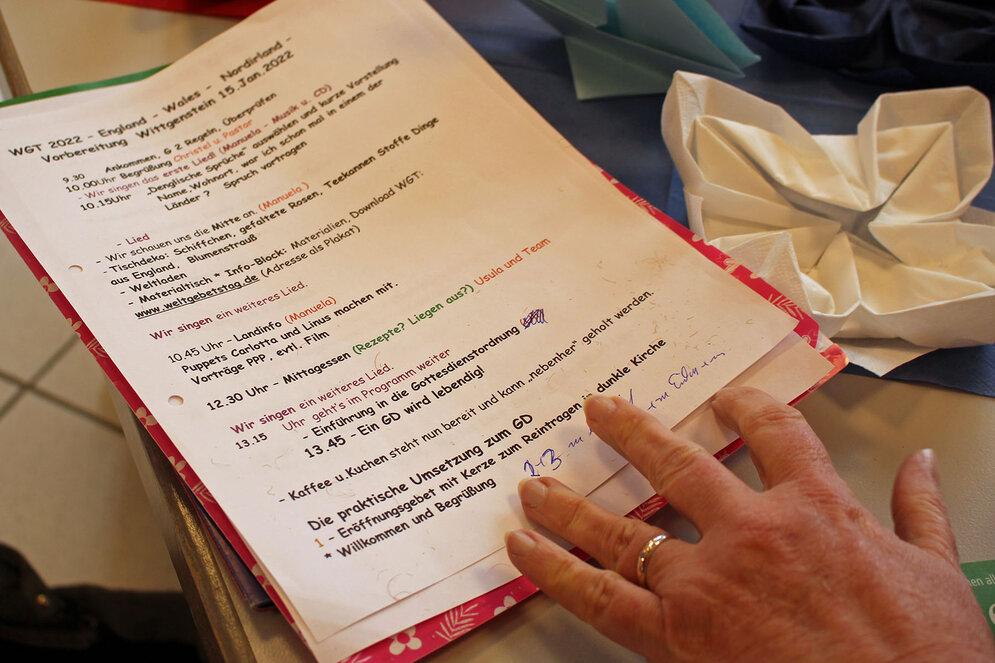 WGT 2022 - England - Wales - Nordirland -
Vorbereitung Wittgenstein 15.Jan.2022
9.30 Ankommen, G 2 Regeln, Überprüfen
10.00Uhr Begrüßung Christel u. Pastor
- Wir singen das erste Lied! (Manuela - Musik u. CD)
10.15Uhr „Denglische Sprüche" auswählen und kurze Vorstellung
Name, Wohnort, war ich schon mal in einem der
Länder ? Spruch vortragen
- Lied
- Wir schauen uns die Mitte an. (Manuela)
- Tischdeko: Schiffchen, gefaltete Rosen, Teekannen Stoffe Dinge
aus England, Blumenstrauß
- Weltladen
- Materialtisch * Info-Block: Materialien, Download WGT:
www.weltgebetstag.de (Adresse als Plakat)
Wir singen ein weiteres Lied.
10.45 Uhr - Landinfo (Manuela)
Puppets Carlotta und Linus machen mit.
Vorträge PPP . evtl. Film
12.30 Uhr - Mittagessen (Rezepte? Liegen aus?) Usula und Team
Wir singen ein weiteres Lied.
13.15 Uhr geht's im Programm weiter
- Einführung in die Gottesdienstordnung
13.45 - Ein GD wird lebendig!
- Kaffee u.Kuchen steht nun bereit und kann „nebenher" geholt werden.
Die praktische Umsetzung zum GD
1 - Eröffnungsgebet mit Kerze zum Reintragen in dunkle Kirche
* Willkommen und Begrüßung
2-3